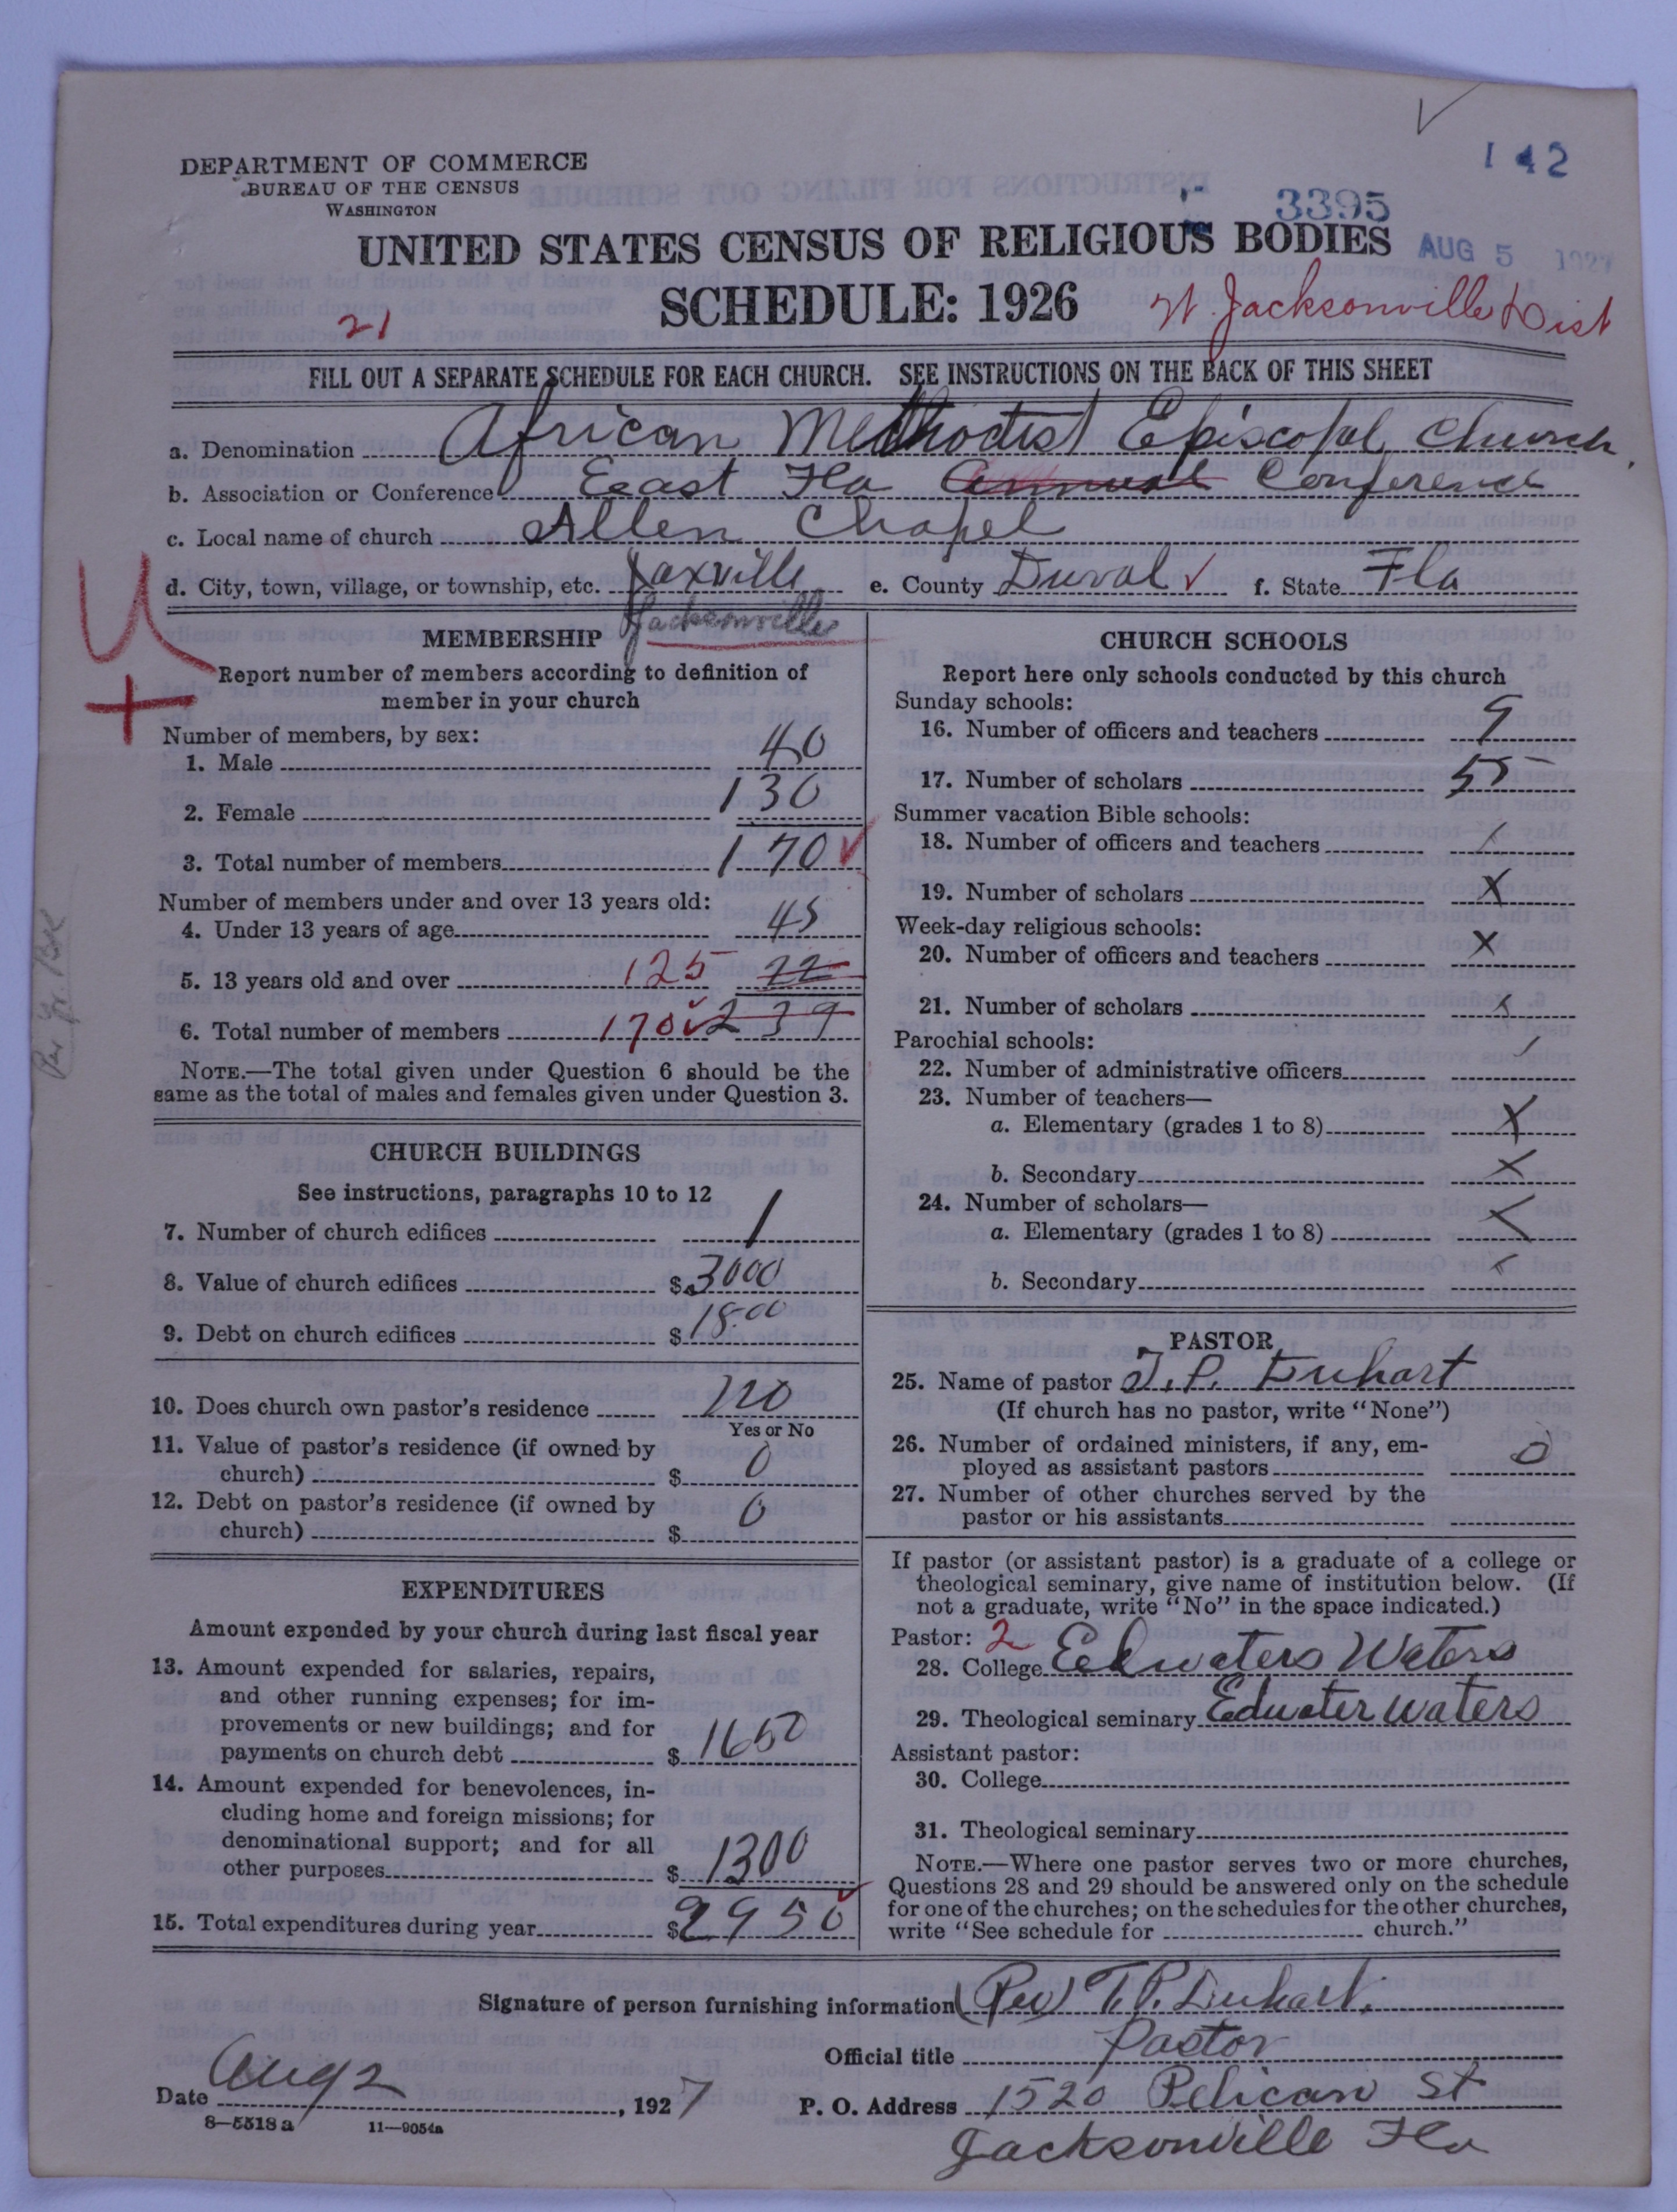 142
3395
AUG 5 1927
DEPARTMENT OF COMMERCE
BUREAU OF THE CENSUS
WASHINGTON
UNITED STATES CENSUS OF RELIGIOUS BODIES
SCHEDULE: 1926
21
W. Jacksonville Dist
FILL OUT A SEPARATE SCHEDULE FOR EACH CHURCH. SEE INSTRUCTIONS ON THE BACK OF THIS SHEET
a. Denomination African Methodist Episcopal Church.
b. Association or Conference East Fla Annual Conference
c. Local name of church Allen Chapel
d. City, town, village, or township, etc. Jaxville e. County Duval f. State Fla
Jacksonville
U
+
MEMBERSHIP
Report number of members according to definition of
member in your church
Number of members, by sex:
1. Male 40
2. Female 130
3. Total number of members 170
Number of members under and over 13 years old:
4. Under 13 years of age 45
5. 13 years old and over 125 22
6. Total number of members 170 239
NOTE.—The total given under Question 6 should be the
same as the total of males and females given under Question 3.
CHURCH BUILDINGS
See instructions, paragraphs 10 to 12
7. Number of church edifices 1
8. Value of church edifices $3000
9. Debt on church edifices $18.00
10. Does church own pastor's residence no
Yes or No
11. Value of pastor's residence (if owned by
church) $ 0
12. Debt on pastor's residence (if owned by
church) $ 0
EXPENDITURES
Amount expended by your church during last fiscal year
13. Amount expended for salaries, repairs,
and other running expenses; for im-
provements or new buildings; and for
payments on church debt $ 1650
14. Amount expended for benevolences, in-
cluding home and foreign missions; for
denominational support; and for all
other purposes $ 1300
15. Total expenditures during year $2950
CHURCH SCHOOLS
Report here only schools conducted by this church
Sunday schools:
16. Number of officers and teachers 9
17. Number of scholars 55
Summer vacation Bible schools:
18. Number of officers and teachers
19. Number of scholars X
Week-day religious schools:
20. Number of officers and teachers X
21. Number of scholars X
Parochial schools:
22. Number of administrative officers
23. Number of teachers—
a. Elementary (grades 1 to 8) X
b. Secondary X
24. Number of scholars—
a. Elementary (grades 1 to 8) X
b. Secondary X
PASTOR
25. Name of pastor T. P. Duhart
(If church has no pastor, write "None")
26. Number of ordained ministers, if any, em-
ployed as assistant pastors 0
27. Number of other churches served by the
pastor or his assistants
If pastor (or assistant pastor) is a graduate of a college or
theological seminary, give name of institution below. (If
not a graduate, write "No" in the space indicated.)
Pastor: 2
28. College Edwaters Waters
29. Theological seminary Edwater Waters
Assistant pastor:
30. College
31. Theological seminary
NOTE.—Where one pastor serves two or more churches,
Questions 28 and 29 should be answered only on the schedule
for one of the churches; on the schedules for the other churches,
write "See schedule for church."
Signature of person furnishing information (Rev) T. P. Duhart.
Official title Pastor
Date Aug 2, 1927
P. O. Address 1520 Pelican St
Jacksonville Fla
8—5518 a 11—9054a